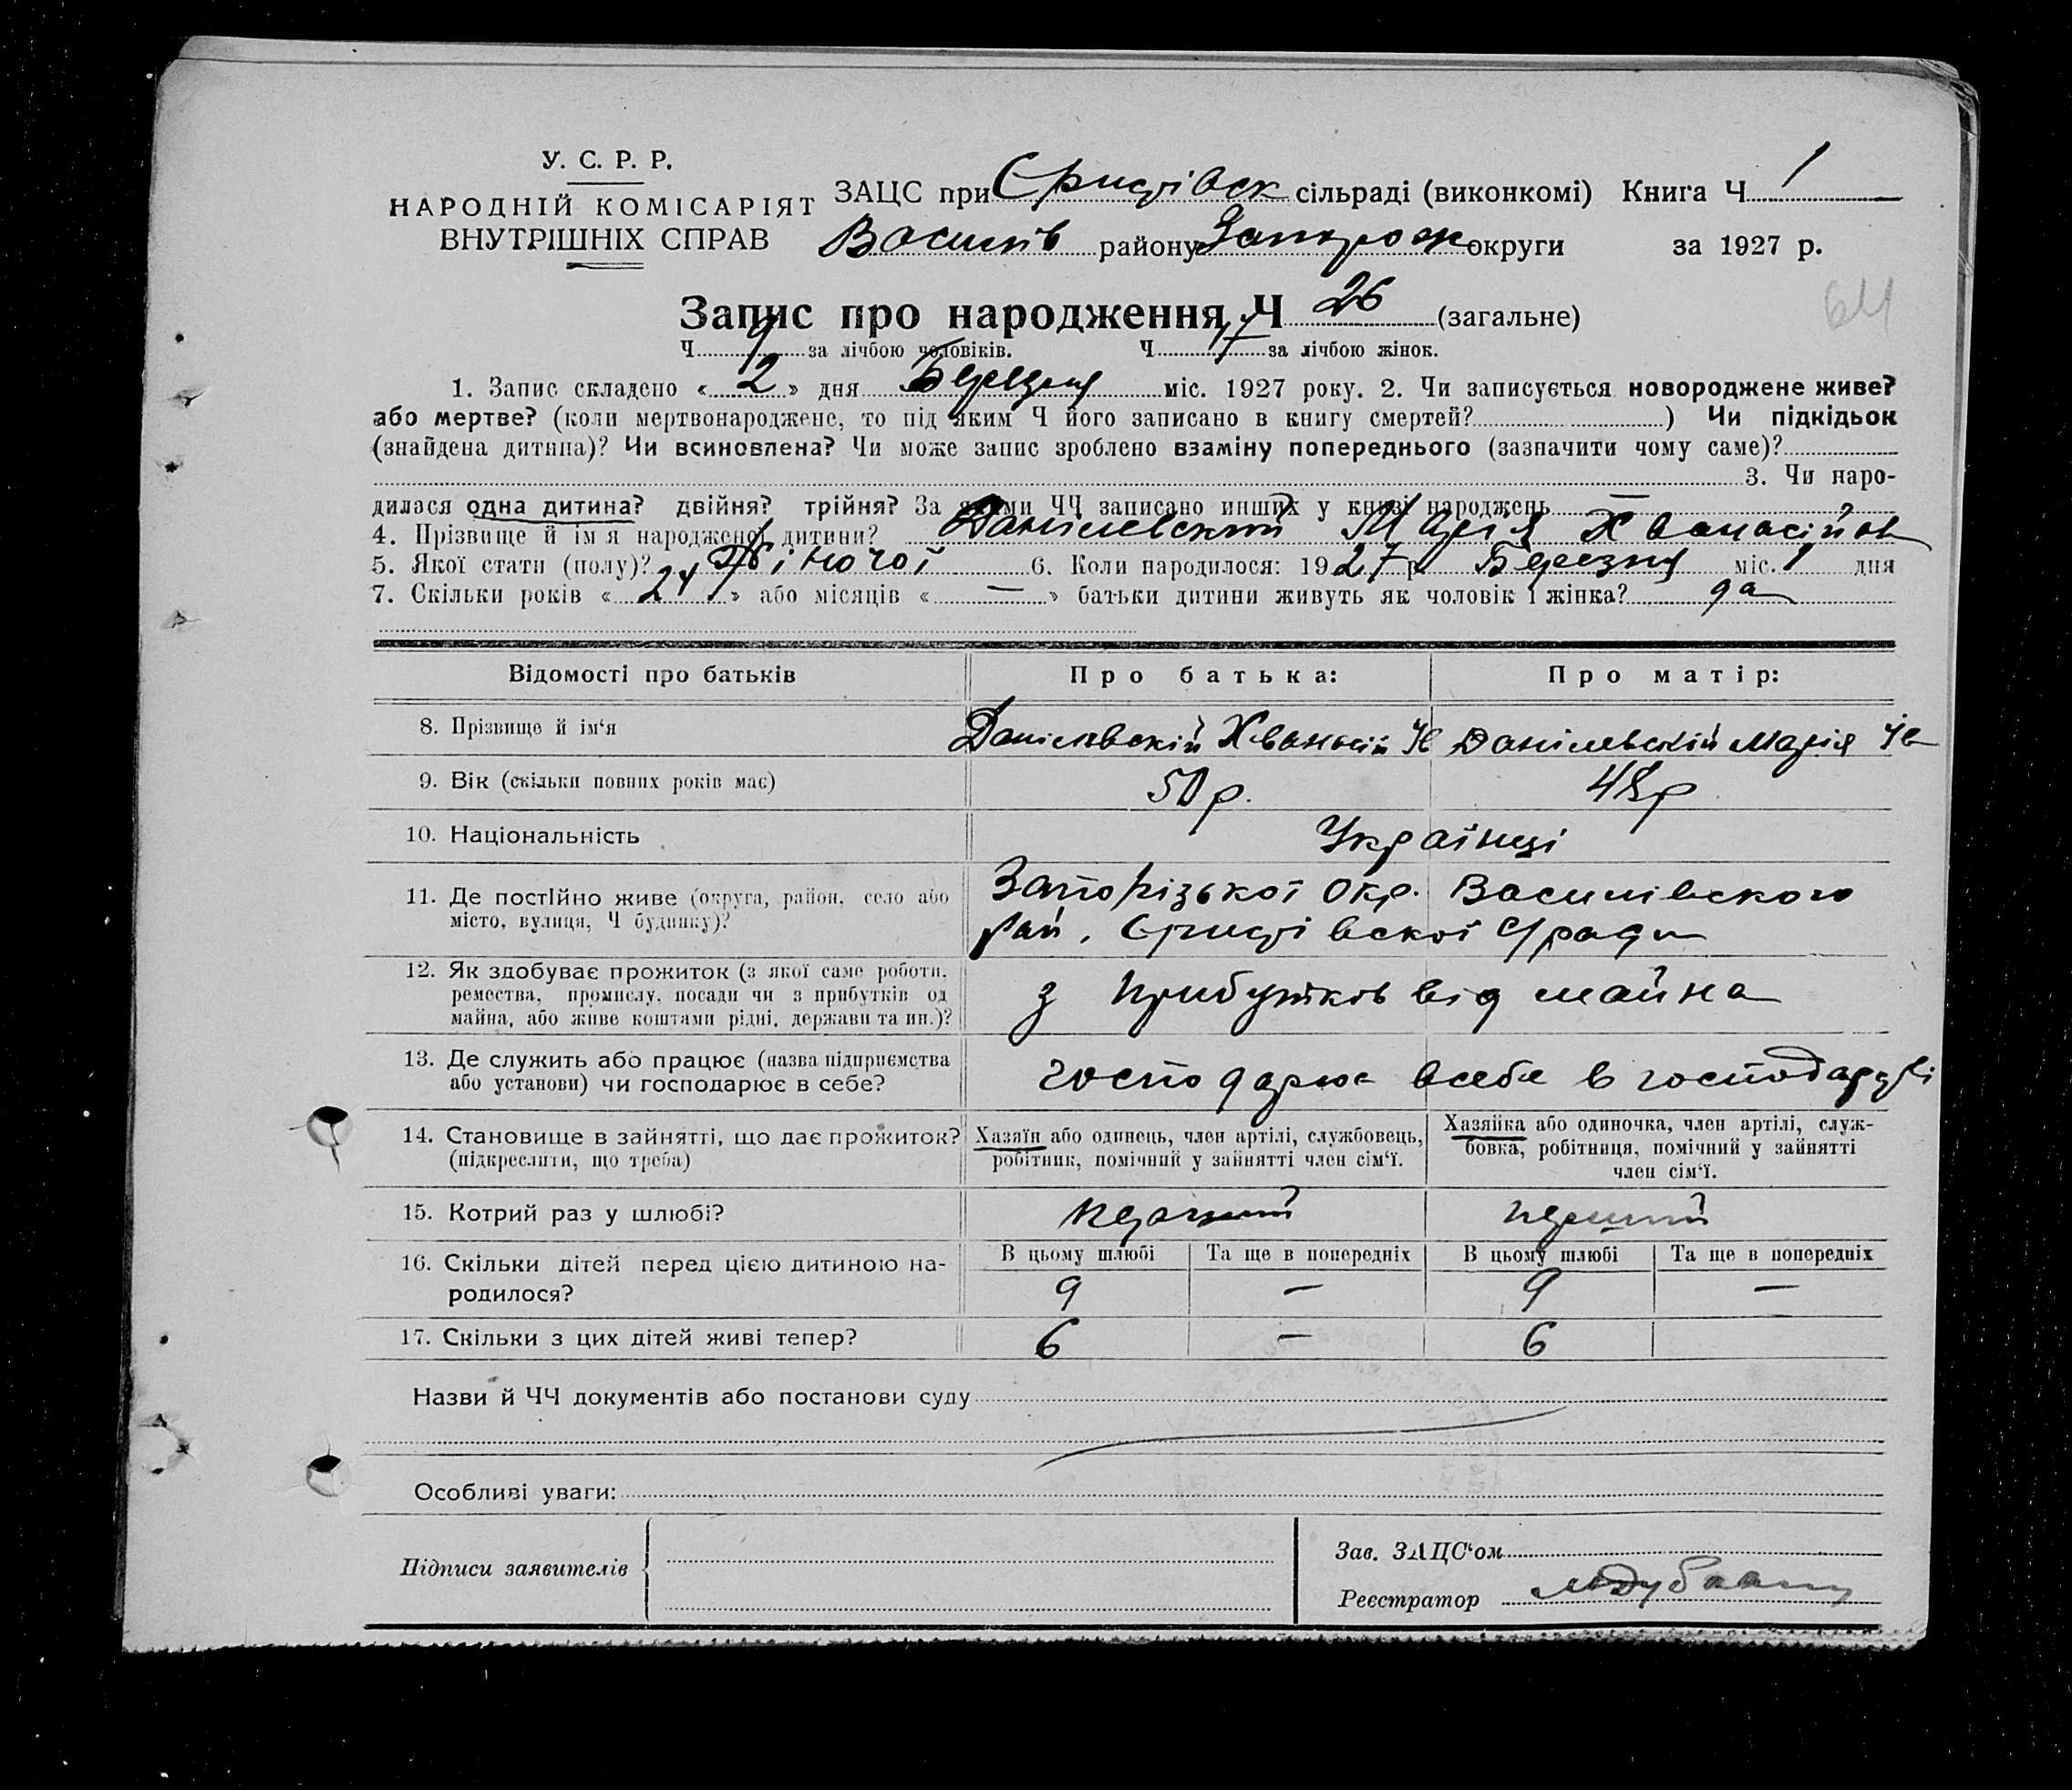 У. С. Р. Р.
НАРОДНІЙ КОМІСАРІЯТ
ВНУТРІШНІХ СПРАВ
ЗАЦС при сільраді (виконкомі) Книга Ч 1
Василів району Запорож округи за 1927 р.
64
Запис про народження Ч 26 (загальне)
Ч 9 за лічбою чоловіків. Ч 17 за лічбою жінок.
1. Запис складено « 2 » дня Березня міс. 1927 року. 2. Чи записується новороджене живе?
або мертве? (коли мертвонароджене, то під яким Ч його записано в книгу смертей? ) Чи підкідьок
(знайдена дитина)? Чи всиновлена? Чи може запис зроблено взаміну попереднього (зазначити чому саме)?
3. Чи наро-
дилася одна дитина? двійня? трійня? За якими ЧЧ записано инших у книзі народжень —
4. Прізвище й ім'я народженої дитини? Данілевский Марія Хванасійов
5. Якої статі (полу)? Жіночої 6. Коли народилося: 1927 р. Березня міс. 1 дня
7. Скільки років « 24 » або місяців « — » батьки дитини живуть як чоловік і жінка? да
Відомості про батьків
Про батька:
Про матір:
8. Прізвище й ім'я
Данілевскій Хванасій Ів
Данілевскій Марія Ів
9. Вік (скільки повних років має)
50 р.
48 р
10. Національність
Українці
11. Де постійно живе (округа, район, село або
місто, вулиця, Ч будинку)?
Запорізької Окр. Василівского
рай. С/ради
12. Як здобуває прожиток (з якої саме роботи,
ремества, промислу, посади чи з прибутків од
майна, або живе коштами рідні, держави та ин.)?
з прибутків від майна
13. Де служить або працює (назва підприємства
або установи) чи господарює в себе?
господарює всебе в господарстві
14. Становище в зайнятті, що дає прожиток?
(підкреслити, що треба)
Хазяїн або одинець, член артілі, службовець,
робітник, помічний у зайнятті член сім'ї.
Хазяйка або одиночка, член артілі, служ-
бовка, робітниця, помічний у зайнятті
член сім'ї.
15. Котрий раз у шлюбі?
перший
перший
16. Скільки дітей перед цією дитиною на-
родилося?
В цьому шлюбі
Та ще в попередніх
В цьому шлюбі
Та ще в попередніх
9
—
9
—
17. Скільки з цих дітей живі тепер?
6
—
6
Назви й ЧЧ документів або постанови суду
Особливі уваги:
Підписи заявителів
Зав. ЗАЦС'ом
Реєстратор